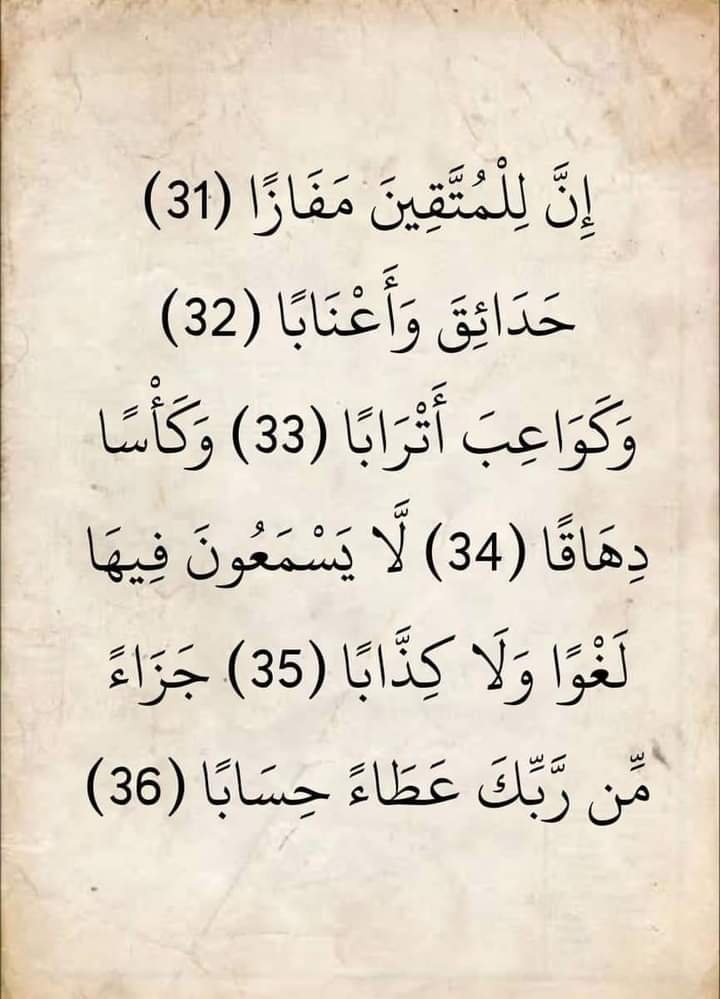 إِنَّ لِلْمُتَّقِينَ مَفَازًا (31)
حَدَائِقَ وَأَعْنَابًا (32)
وَكَوَاعِبَ أَتْرَابًا (33) وَكَأْسًا
دِهَاقًا (34) لَّا يَسْمَعُونَ فِيهَا
لَغْوًا وَلَا كِذَّابًا (35) جَزَاءً
مِّن رَّبِّكَ عَطَاءً حِسَابًا (36)